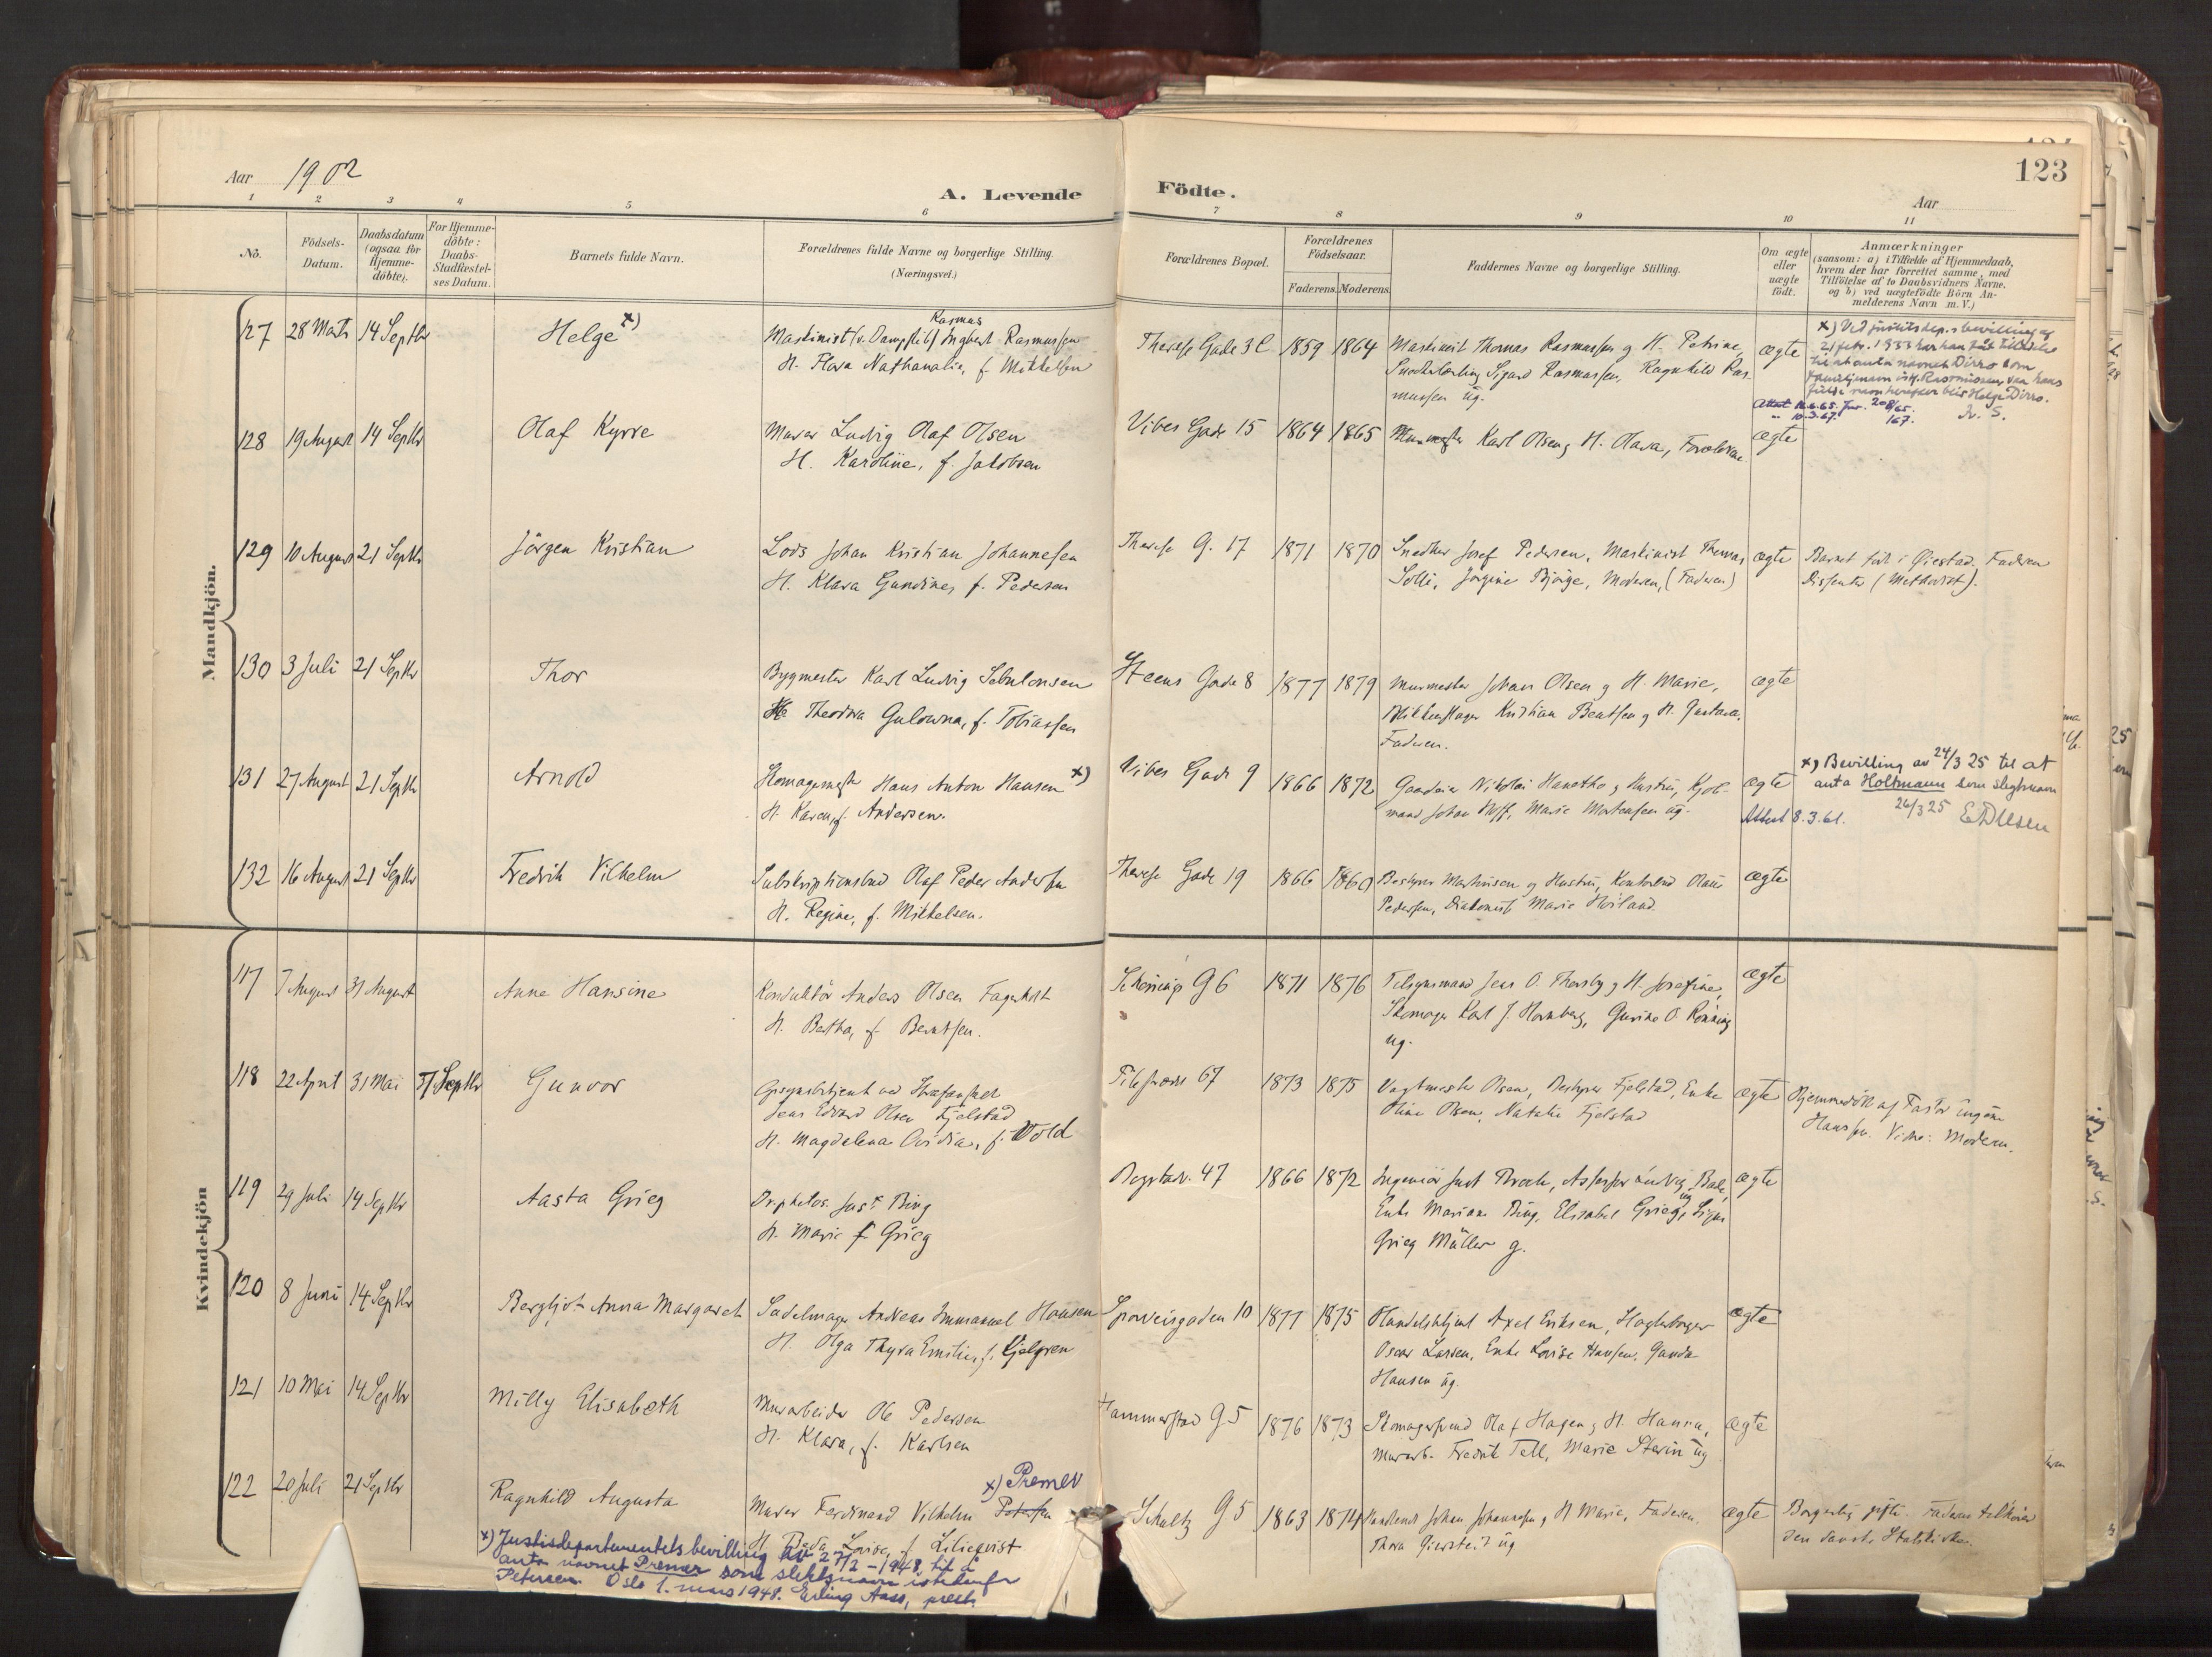 Aar 1902
A. Levende
Födte.
Aar
123
1 2 3 4 5 6 7 8 9 10 11
No.
Födsels-
Datum.
Daabsdatum
(ogsaa for
Hjemme-
döbte).
For Hjemme-
döbte:
Daabs-
Stadfæstel-
ses Datum.
Barnets fulde Navn.
Forældrenes fulde Navne og borgerlige Stilling.
(Næringsvei.)
Forældrenes Bopæl.
Forældrenes
Födselsaar.
Faderens. Moderens.
Faddernes Navne og borgerlige Stilling.
Om ægte
eller
uægte
født.
Anmærkninger
(saasom: a) i Tilfælde af Hjemmedaab,
hvem der har forrettet samme, med
Tilföielse af to Daabsvidners Navne,
og b) ved uægtefödte Börn An-
melderens Navn m. V.)
Mandkjön.
127 28 Marts 14 Septbr Helge x)
Rasmus
Maskinist (v. Dampskib) Ingbert Rasmussen
H. Flora Nathanalia, f. Mikkelsen
Therese Gade 3 C 1859 1864
Maskinist Thomas Rasmussen og H. Petrine,
Snedkerlærling Sigurd Rasmussen, Ragnhild Ras-
mussen ug.
ægte
x) Ved justitsdep.s bevilling av
21 febr. 1933 har han fåt tilladelse
til at anta navnet Dirro som
familienavn istf. Rasmussen, saa hans
fulde navn herefter blir Helge Dirro.
128 19 August 14 Septbr Olaf Kyrre
Murer Ludvig Olaf Olsen
H. Karoline, f. Jakobsen
Vibes Gade 15 1864 1865
Murmester Karl Olsen og H. Olava, Forældrene
ægte
129 10 August 21 Septbr Jörgen Kristian
Lods Johan Kristian Johannesen
H. Klara Gundine, f. Pedersen
Therese G. 17 1871 1870
Snedker Josef Pedersen, Maskinist Thomas
Solli, Jörgine Bjorge, Moderen, (Faderen)
ægte
Barnet født i Øiestad. Faderen
Dissenter (Methodist).
130 3 Juli 21 Septbr Thor
Bygmester Karl Ludvig Sebulonsen
H. Theodora Gulowna, f. Tobiassen
Steens Gade 8 1877 1879
Murmester Johan Olsen og H. Marie,
Blikkenslager Kristian Bentsen og H. Gustava,
Faderen.
ægte
131 27 August 21 Septbr Arnold
Skomagermester Hans Anton Hansen x)
H. Karen, f. Andersen.
Vibes Gade 9 1866 1872
Gaardeier Nikolai Hanetho og Hustru, Kjøb-
mand Johan Hoff, Marie Mortensen ug.
ægte
x) Bevilling av 24/3 25 til at
anta Holtmann som slegtsnavn
26/3 25
Attest 8.3.61.
132 16 August 21 Septbr Fredrik Vilhelm
Subskriptionsbud Olaf Peder Andersen
H. Regine, f. Mikkelsen.
Therese Gade 19 1866 1860
Bestyrer Martinsen og Hustru, Kontorbud Olaus
Pedersen, Diakonisse Marie Hoiland.
ægte
Kvindekjön
117 7 August 31 August Anne Hansine
Konduktör Anders Olsen Fagerholt
H. Bertha, f. Berntsen.
Schønings G 6 1871 1876
Tilsynsmand Jens O. Thorsby og H. Josefine,
Skomager Karl J. Hornberg, Gurine O. Rönning
ug.
ægte
118 22 April 31 Mai Septbr Gunvor
Opsynsbetjent ved Strafanstalt
Jens Edvard Olsen Fjelstad
H. Magdalena Ovidia, f. Wold
Pilestrædet 67 1873 1875
Vagtmester Olsen, Bestyrer Fjelstad, Enke
Oline Olsen, Natalie Fjelstad
ægte
Hjemmedöbt af Pastor Eugene
Hanssen. Vidne: Moderen.
119 29 Juli 14 Septbr Aasta Grieg
Dr philos. Just Bing
H. Marie f Grieg
Bogstadv. 47 1866 1872
Ingeniør Just Broch,
Enke Mariane Bing, Elisabet Grieg ug, Signe
Grieg Müller g.
ægte
120 8 Juni 14 Septbr Bergljot Anna Margaret
Sadelmager Andreas Immanuel Hansen
H. Olga Thyra Emilie, f. Kjelgren
Sporveisgaden 10 1877 1875
Handelsbetjent Axel Eriksen,
Oscar Larsen, Enke Lovise Hansen, Ganda
Hansen ug.
ægte
121 10 Mai 14 Septbr Milly Elisabeth
Murarbeider Ole Pedersen
H. Klara, f. Karlsen
Hammerstad G 5 1876 1873
Skomagersvend Olaf Hagen og H. Hanna,
Murarb. Fredrik Tell, Marie Sterin ug
ægte
122 20 Juli 21 Septbr Ragnhild Augusta
x) Premer
Murer Ferdinand Vilhelm Petersen
H. Lovise, f. Liliequist
Schultz G 5 1863 1874
Johan Johannesen og H Marie, Faderen.
Thora ug
ægte
Borgerlig gifte. Faderen tilhører
den danske Statskirke.
x) Justisdepartementets bevilling av 27/2 - 1948 til å
anta navnet Premer som slektsnavn istedenfor
Petersen. Oslo 1. mars 1948. Erling Aass, prest.